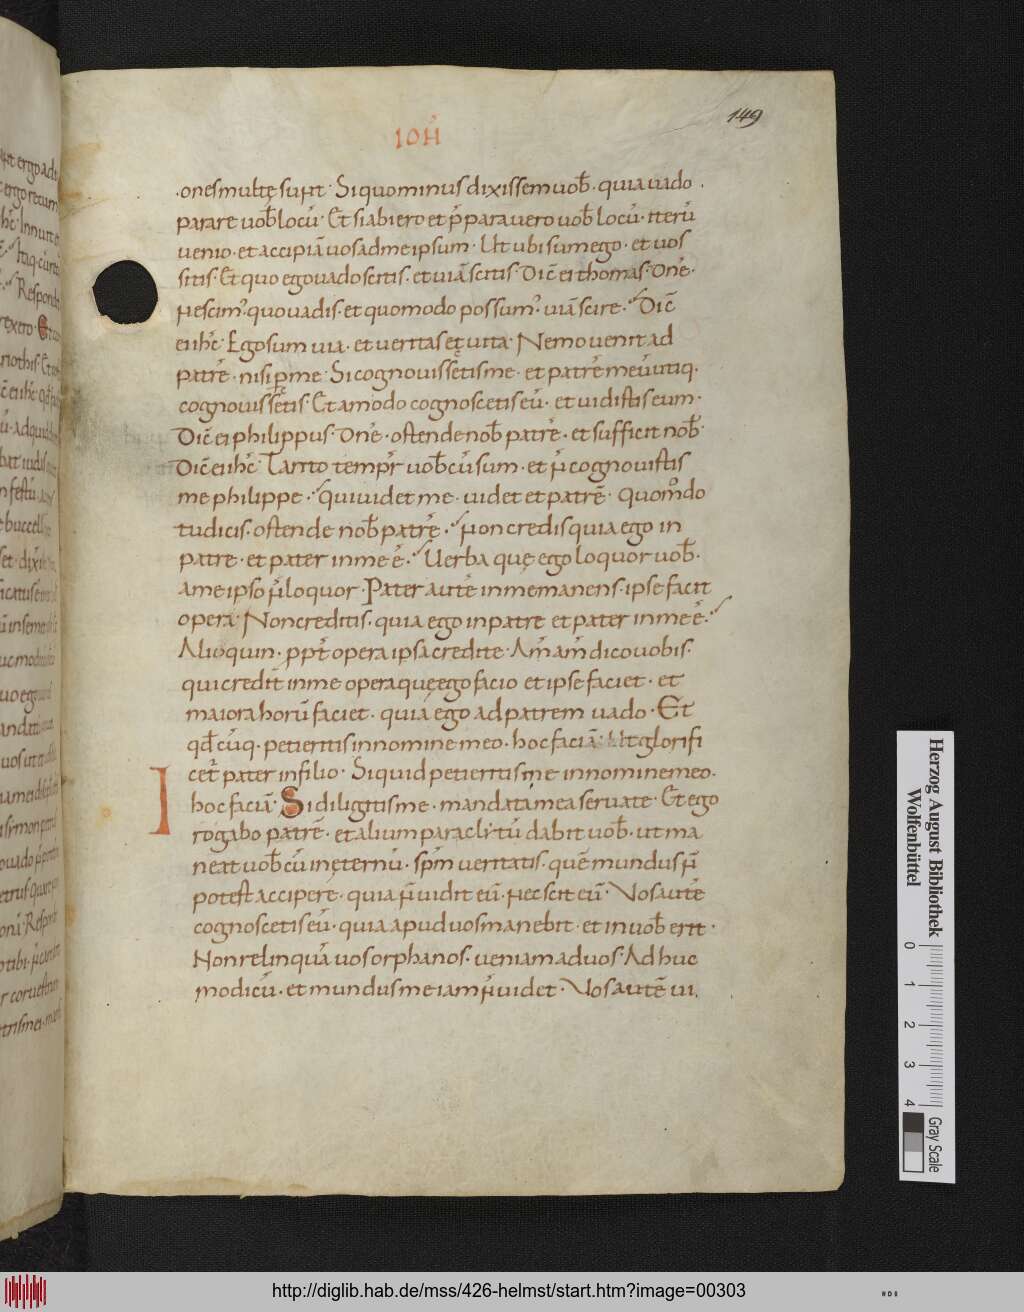 149
IOH̄
ones multę sunt · Si quominus dixissem vob̄ · quia vado ·
parare vob̄ locū · Et si abiero et p̄paravero vob̄ locū · iterū
venio · et accipiā vos ad me ipsum · Ut ubi sum ego · et vos
sitis · Et quo ego vado scitis · et viā scitis · Dic̄ ei thomas · Dn̄e ·
nescim᾿ quo vadis · et quomodo possum᾿ viā scire · Dic̄
ei ihc̄ · Ego sum via · et veritas et vita · Nemo venit ad
patrē · nisi p me · Si cognovissetis me · et patrē meū utiq ·
cognovissetis · Et amodo cognoscetis eū · et vidistis eum ·
Dic̄ ei philippus · Dn̄e · ostende nob̄ patrē · et sufficit nob̄ ·
Dic̄ ei ihc̄ · Tanto tempr̄ vob̄cū sum · et n̄ cognovistis
me philippe · Qui videt me · videt et patrē · Quomodo
tu dicis · ostende nob̄ patrē · Non credis quia ego in
patre · et pater in me ē · Verba quę ego loquor vob̄ ·
a me ipso n̄ loquor · Pater autē in me manens · ipse facit
opera · Non creditis · quia ego in patre et pater in me ē ·
Alioquin · ppt̄ opera ipsa credite · Am̄ am̄ dico vobis ·
qui credit in me opera que ego facio et ipse faciet · et
maiora horū faciet · quia ego ad patrem vado · Et
qd̄ cūq · petieritis in nomine meo · hoc faciā · Ut glorifi
cet̄ pater in filio · Si quid petieritis me in nomine meo ·
hoc faciā · Si diligitis me · mandata mea servate · Et ego
rogabo patrē · et alium paraclitū dabit vob̄ · ut ma
neat vob̄cū in ęternū · spm̄ veritatis · quē mundus n̄
potest accipere · quia n̄ vidit eū · nec scit eū · Vos autē
cognoscetis eū · quia apud vos manebit · et in vob̄ erit ·
Non relinquā vos orphanos · veniam ad vos · Adhuc
modicū · et mundus me iam n̄ videt · Vos autē vi
Herzog August Bibliothek
Wolfenbüttel
0 1 2 3 4
Gray Scale
http://diglib.hab.de/mss/426-helmst/start.htm?image=00303